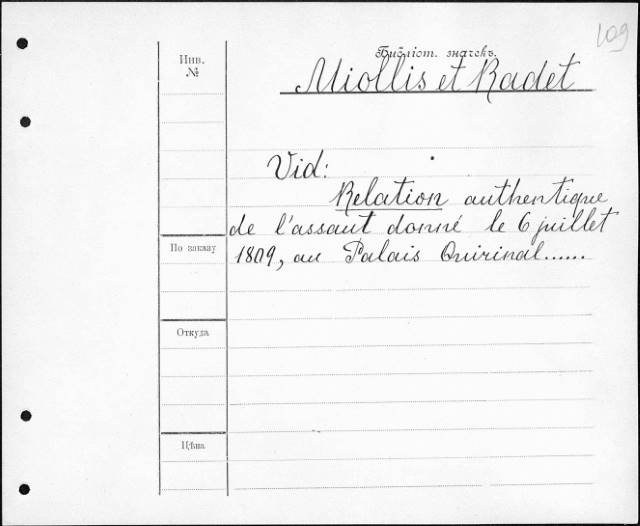 109
Библіот. значекъ.
Инв.
№
Miollis et Radet
Vid:
Relation authentique
de l'assaut donné le 6 juillet
По заказу
1809, au Palais Quirinal......
Откуда
Цѣна